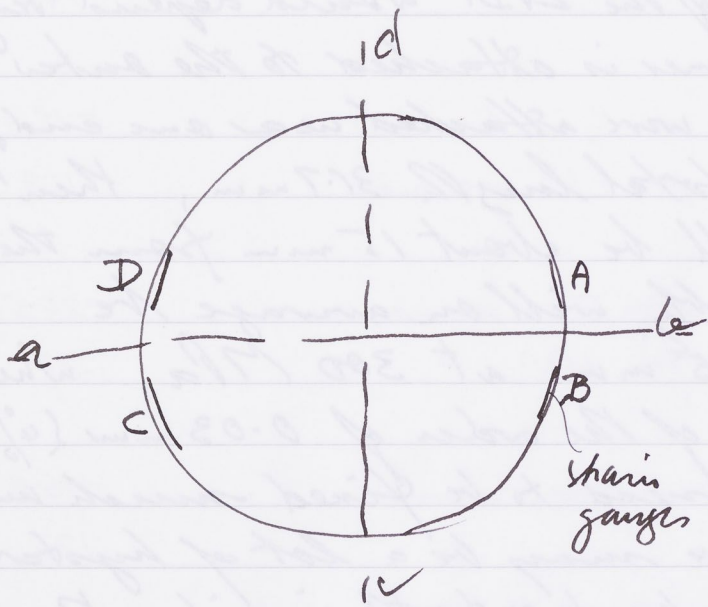 d
D
A
a
b
C
B
strain
gauges
c